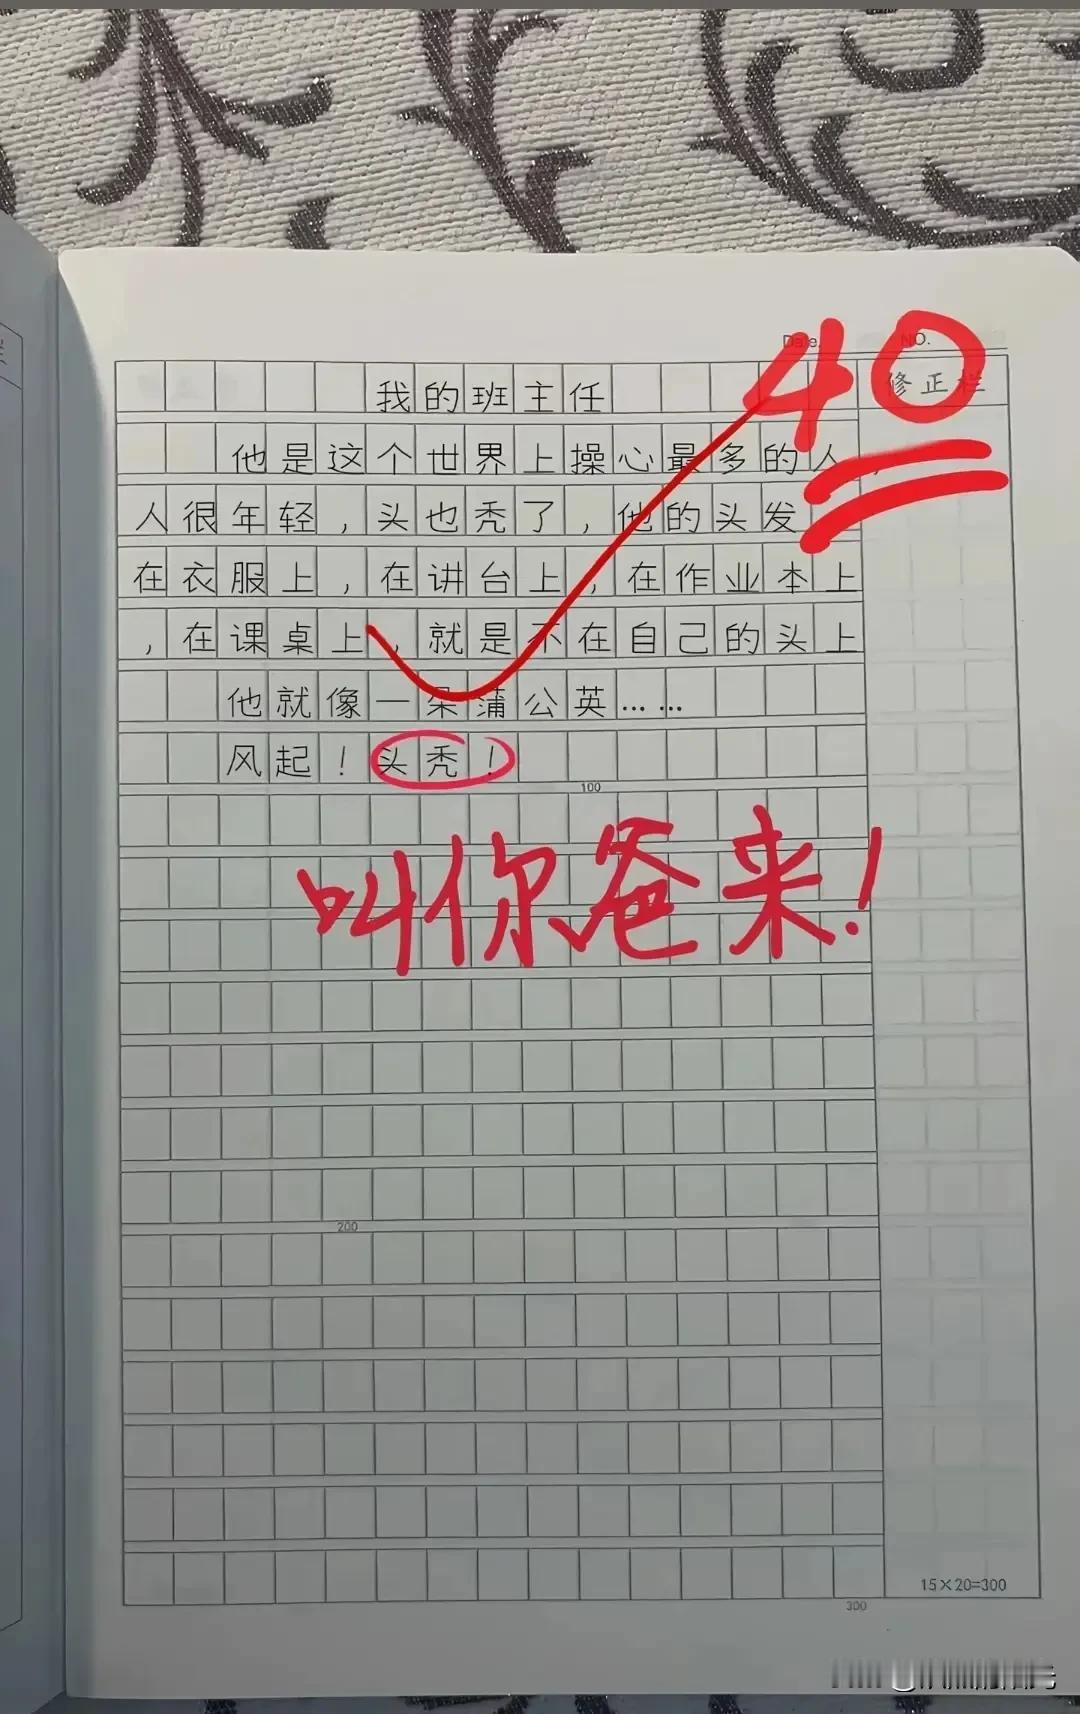 Date.
NO.
40
我的班主任
修正栏
他是这个世界上操心最多的人,
人很年轻,头也秃了,他的头发
在衣服上,在讲台上,在作业本上
,在课桌上,就是不在自己的头上
他就像一朵蒲公英……
风起!头秃!
100
叫你爸来!
200
15×20=300
300